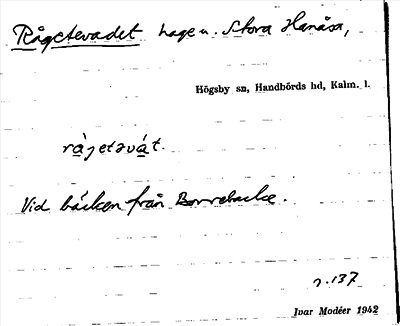 Rågetevadet hage u. Stora Hanåsa,
Högsby sn, Handbörds hd, Kalm. l.
rà̱jetəvá̱t.
Vid bäcken från Borrebacke.
n. 137
Ivar Modéer 1942